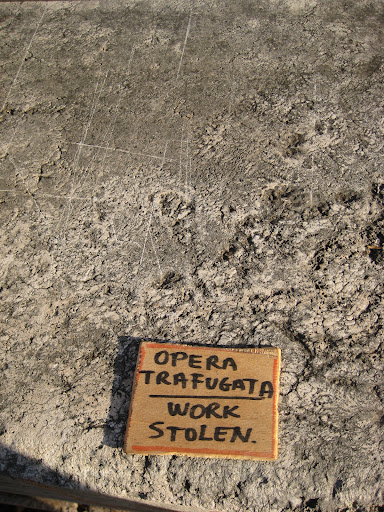 OPERA
TRAFUGATA
WORK
STOLEN.